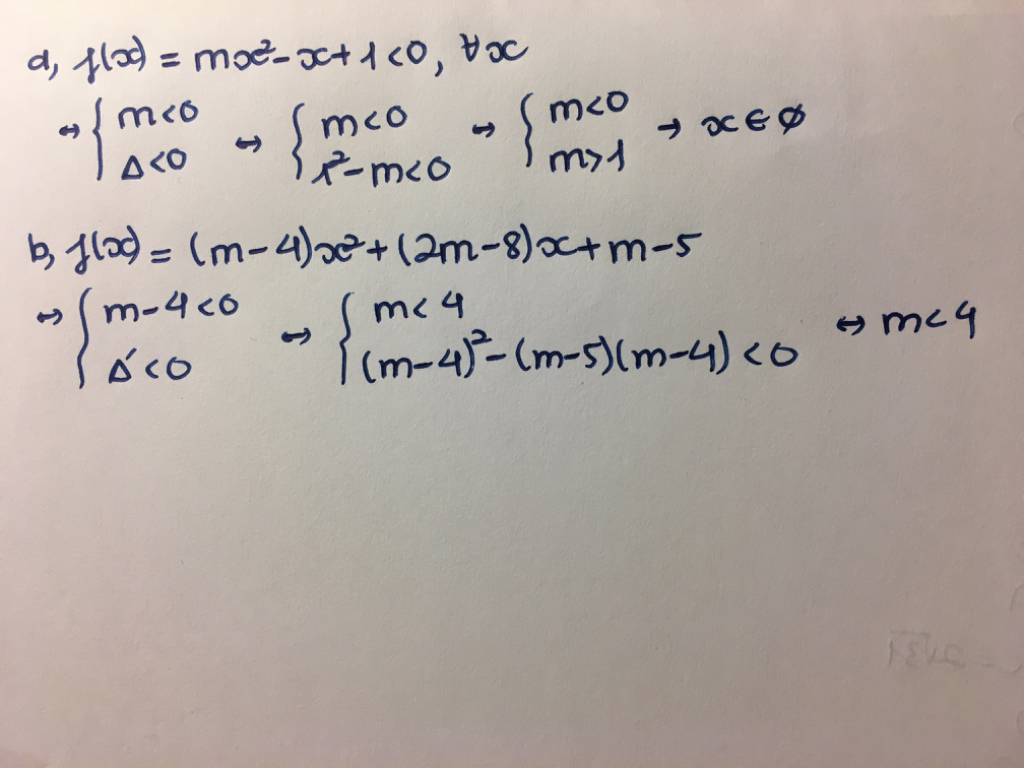 a, f(x) = mx² - x + 1 < 0, ∀x
⇔ { m < 0 ; Δ < 0 ⇔ { m < 0 ; 1² - m < 0 ⇔ { m < 0 ; m > 1 → x ∈ ∅
b, f(x) = (m - 4)x² + (2m - 8)x + m - 5
⇔ { m - 4 < 0 ; Δ' < 0 ⇔ { m < 4 ; (m - 4)² - (m - 5)(m - 4) < 0 ⇔ m < 4